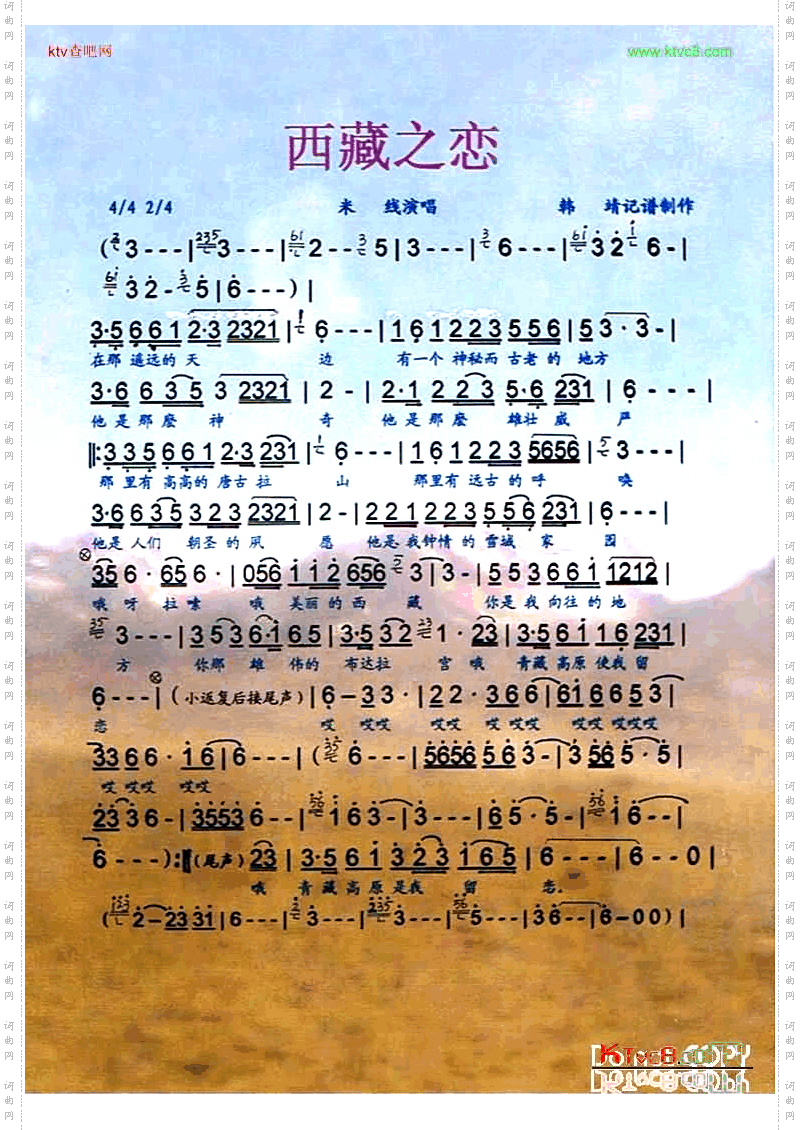 ktv查吧网 www.ktvc8.com
西藏之恋
4/4 2/4 米 线演唱 韩 靖记谱制作
(3---|3---|2--5|3---|6---|3 2 6-|
3 2-5|6---)|
3·5 6 6 1 2·3 2321|6---|1 6 1 2 2 3 5 5 6|5 3·3-|
在那 遥远的 天 边 有一个 神秘而 古老 的 地方
3·6 6 3 5 3 2321|2-|2·1 2 2 3 5·6 231|6---|
他 是 那 麽 神 奇 他 是 那 麽 雄壮 威 严
‖:3 3 5 6 6 1 2·3 231|6---|1 6 1 2 2 3 5656|3---|
那 里有 高高的 唐古 拉 山 那里有 远古 的 呼 唤
3·6 6 3 5 3 2 3 2321|2-|2 2 1 2 2 3 5 5 6 231|6---|
他是 人们 朝圣 的 夙 愿 他是 我钟情 的 雪域 家 园
35 6·65 6·|056 1 1 2 656|3|3-|5 5 3 6 6 1 1212|
哦 呀 拉 嗦 哦 美丽 的 西 藏 你是 我 向往 的 地
3---|3 5 3 6·1 6 5|3·5 3 2 1·23|3·5 6 1 1 6 231|
方 你那 雄 伟的 布达拉 宫 哦 青藏 高原 使我 留
6---|(小返复后接尾声)|6-3 3·|2 2·3 6 6|6 1 6 6 5 3|
恋 哎 哎哎 哎哎 哎 哎哎 哎哎 哎哎哎
33 6 6·16|6---|(6---|5656 5 6 3-|3 56 5·5|
哎 哎哎 哎哎
23 3 6-|3553 6--|1 6 3-|3---|6 5·5-|1 6--|
6---):‖(尾声) 23|3·5 6 1 3 2 3 1 6 5|6---|6--0|
哦 青 藏 高 原 是我 留 恋.
(2-23 31|6---|3---|3---|5---|3 6--|6-00)|
KTvc8.com
词曲网